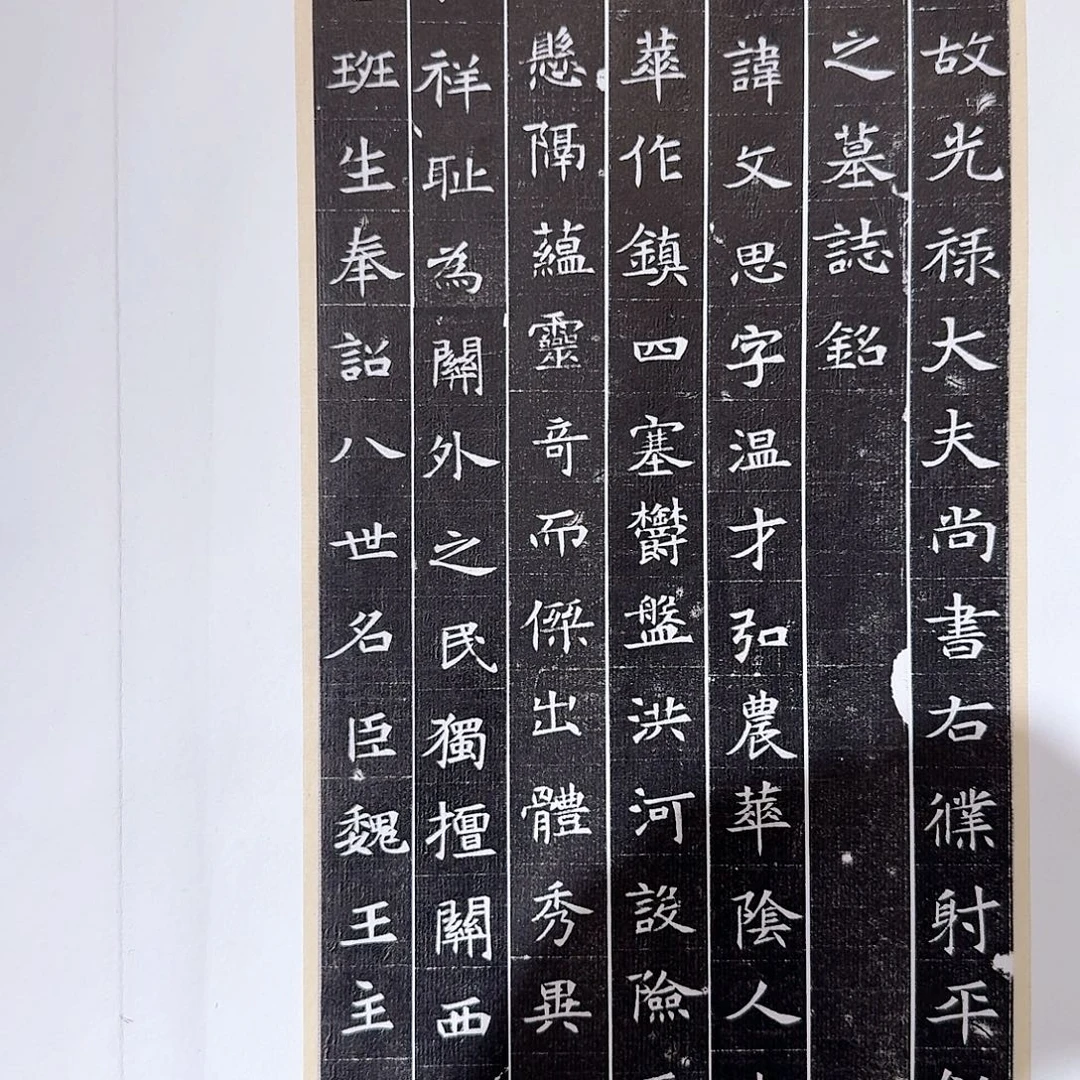 故光禄大夫尚書右僕射平
之墓誌銘
諱文思字温才弘農華陰人
華作鎮四塞欝盤洪河設險
懸隔藴靈奇而傑出體秀異
祥耻為關外之民獨擅關西
班生奉詔八世名臣魏王主